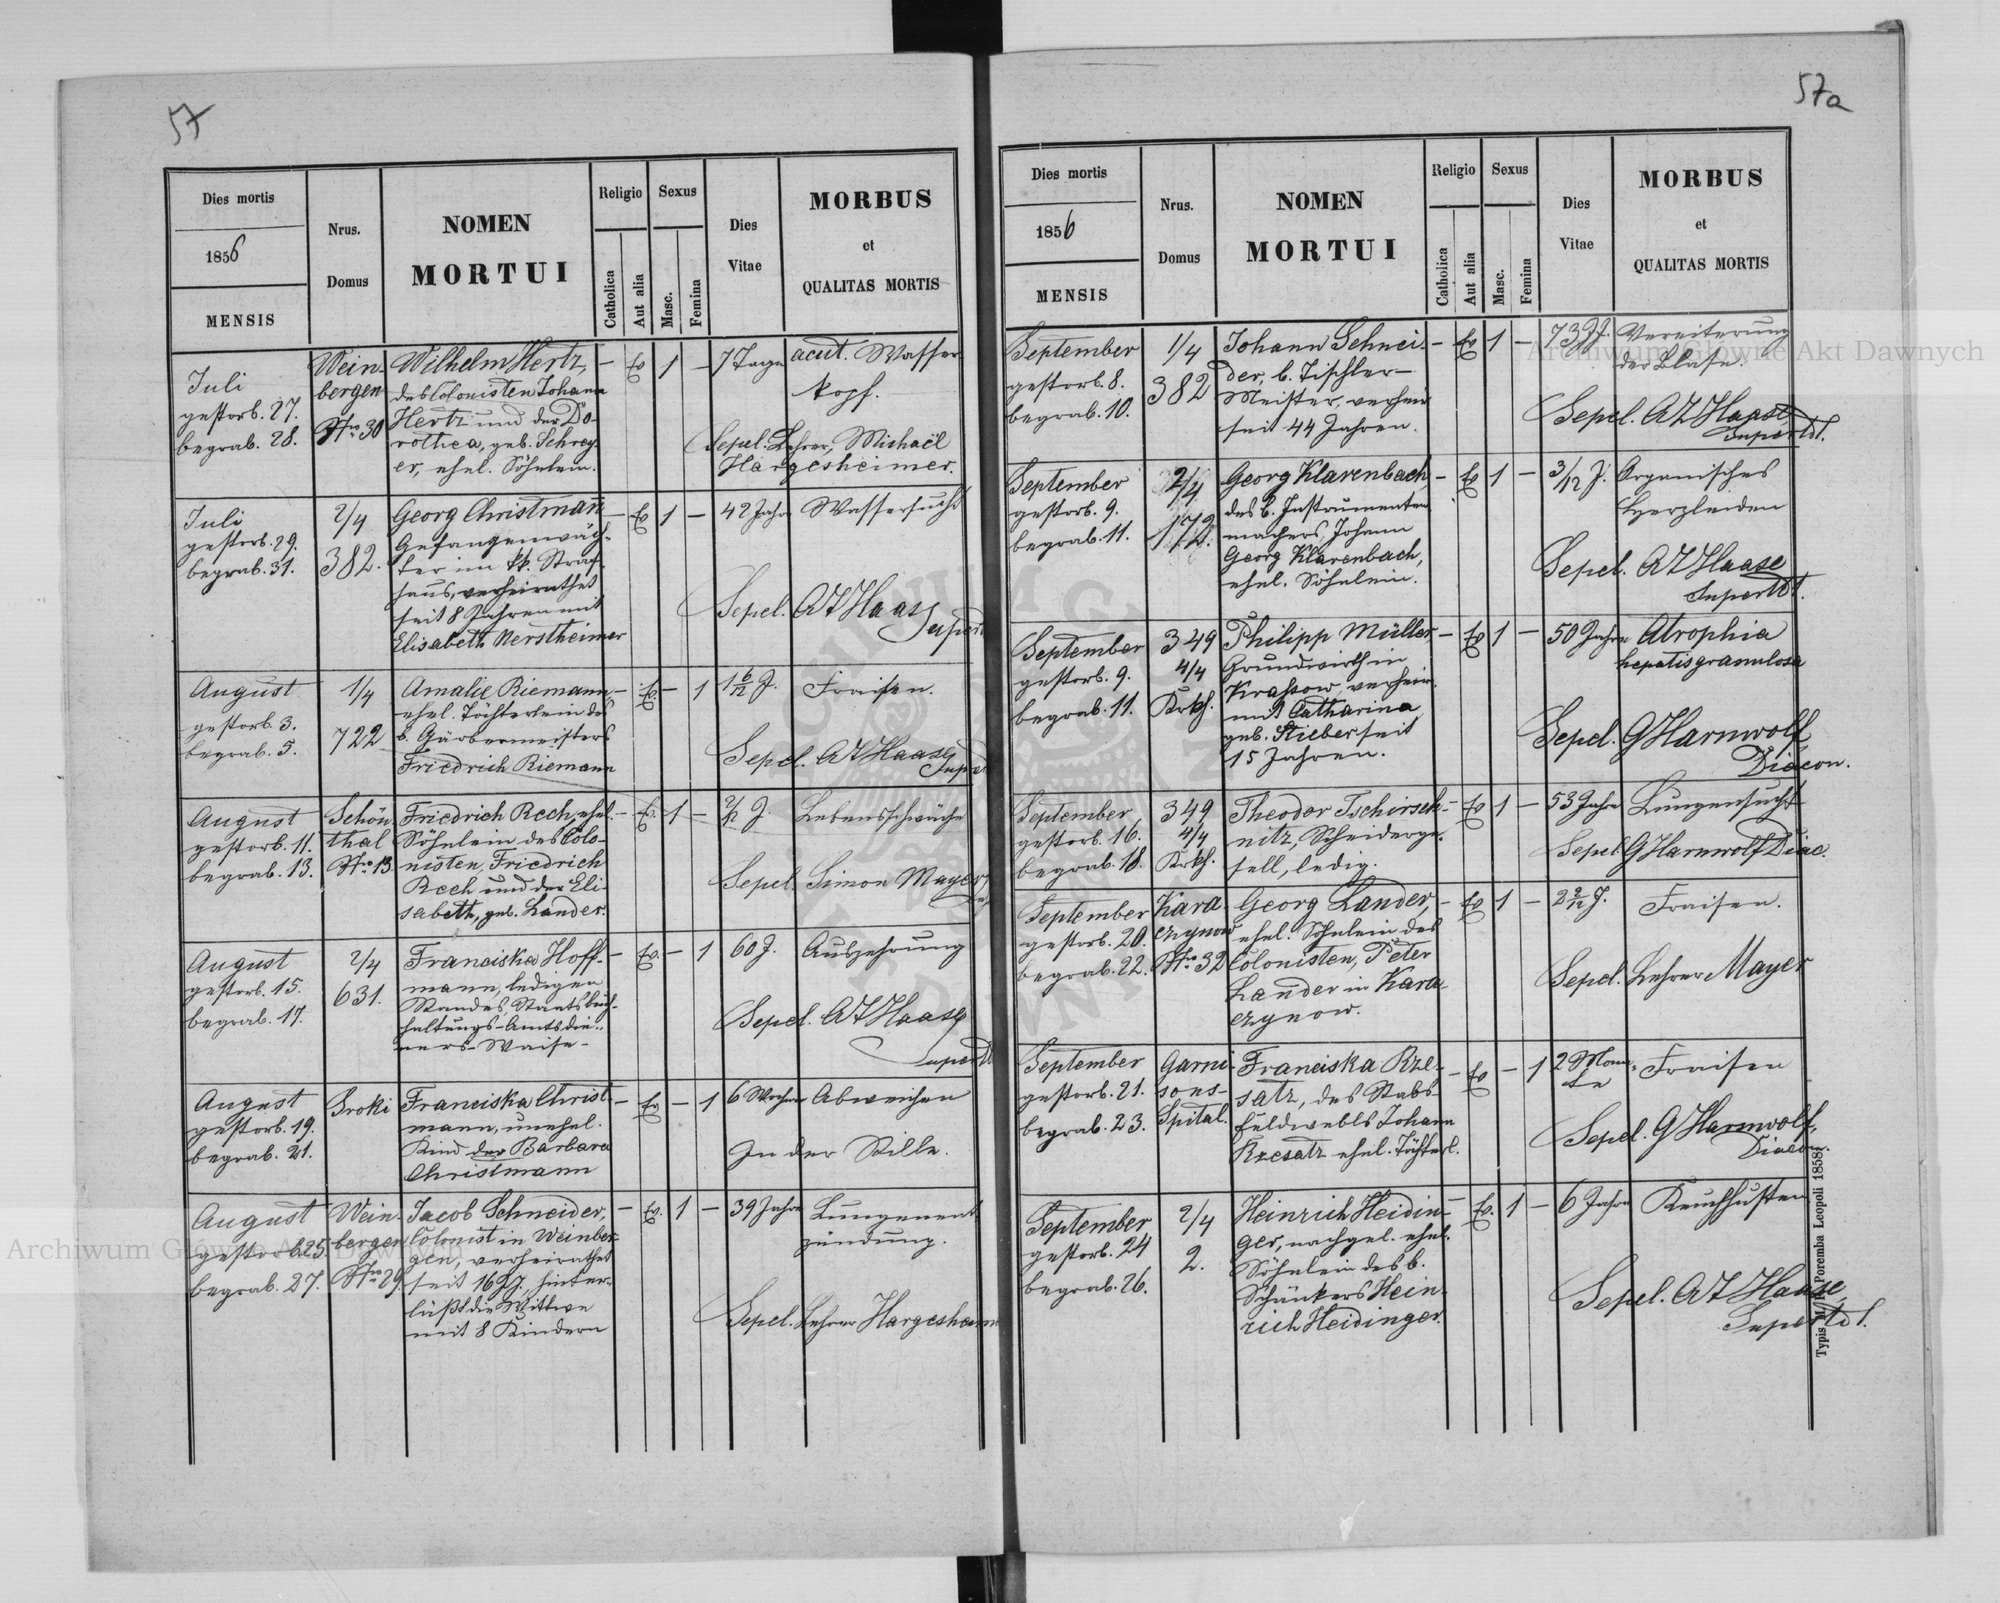 57
Dies mortis
1856
MENSIS
Nrus.
Domus
NOMEN
MORTUI
Religio
Catholica
Aut alia
Sexus
Masc.
Femina
Dies
Vitae
MORBUS
et
QUALITAS MORTIS
Juli
gestorb. 27.
begrab. 28.
Wein-
bergen
Nro 30
Wilhelm Hertz,
des Colonisten Johann
Hertz und der Do-
rothea, geb. Schrey-
er, ehel. Söhnlein.
— Ev 1 — 7 Tage
acut. Wasser-
kopf.
Sepel. Lehrer, Michaël
Hargesheimer.
Juli
gestorb. 29.
begrab. 31.
2/4
382.
Georg Christmañ
Gefangenwäch-
ter im kk. Straf-
haus, verheirathet
seit 8 Jahren mit
Elisabeth Nerstheimer
— Ev 1 — 42 Jahre
Wassersucht
Sepel. A Z Haase
Superdt
August
gestorb. 3.
begrab. 5.
1/4
722
Amalie Riemann,
ehel. Töchterlein des
b. Gärbermeisters
Friedrich Riemann
— Ev. — 1 1 6/12 J.
Fraisen.
Sepel. A Z Haase
Superdt
August
gestorb. 11.
begrab. 13.
Schön
thal
Nro 13.
Friedrich Rech, ehel.
Söhnlein des Colo-
nisten, Friedrich
Rech und der Eli-
sabeth, geb. Lander.
— Ev. 1 — J.
Lebensschwäche
Sepel. Simon Mayer,
August
gestorb. 15.
begrab. 17.
2/4
631.
Franciska Hoff-
mann, ledigen
Standes, Staatsbuch-
haltungs-Amtsdie-
ners-Waise-
— Ev. — 1 60 J.
Auszehrung
Sepel. A Z Haase
Superdt
August
gestorb. 19.
begrab. 21.
Broki
Franciska Christ-
mann, unehel.
Kind der Barbara
Christmann
— Ev — 1 6 Wochen
Abweichen
In der Stille.
August
gestorb. 25.
begrab. 27.
Wein-
bergen
Nro 29.
Jacob Schneider,
Colonist in Weinber-
gen, verheirathet
seit 16 JJ, hinter-
läßt die Wittwe
mit 8 Kindern
— Ev. 1 — 39 Jahre
Lungenent-
zündung.
Sepel. Lehrer Hargesheim
57a
Dies mortis
1856
MENSIS
Nrus.
Domus
NOMEN
MORTUI
Religio
Catholica
Aut alia
Sexus
Masc.
Femina
Dies
Vitae
MORBUS
et
QUALITAS MORTIS
September
gestorb. 8.
begrab. 10.
1/4
382
Johann Schnei-
der, b. Tischler-
Meister, verheir.
seit 44 Jahren.
— Ev 1 — 73 JJ.
Vereiterung
der Blase.
Sepel. A Z Haase,
Superdt.
September
gestorb. 9.
begrab. 11.
2/4
172.
Georg Klarenbach,
des b. Instrumenten-
machers Johann
Georg Klarenbach,
ehel. Söhnlein.
— Ev 1 — 3/12 J.
Organisches
Herzleiden
Sepel. A Z Haase
Superdt.
September
gestorb. 9.
begrab. 11.
349
4/4
Krkh.
Philipp Müller
Grundwirth in
Krassow, verheir.
mit Catharina
geb. Stieber seit
15 Jahren.
— Ev 1 — 50 Jahre
Atrophia
hepatis granulosa
Sepel. G Harnwolf,
Diacon.
September
gestorb. 16.
begrab. 18.
349
4/4
Krkh.
Theodor Tschirsch-
nitz, Schneiderge-
sell, ledig.
— Ev 1 — 53 Jahre
Lungensucht
Sepel G Harnwolf Diac.
September
gestorb. 20.
begrab. 22.
Kara-
czynow
Nro 32
Georg Lander,
ehel. Söhnlein des
Colonisten, Peter
Lander in Kara-
czynow.
— Ev 1 — 2 2/12 J.
Fraisen.
Sepel. Lehrer Mayer
September
gestorb. 21.
begrab. 23.
Garni-
sons-
Spital.
Franciska Rze-
satz, des Stabs-
feldwebls Johann
Rzesatz ehel. Töchterl.
— Ev — 1 2 Mona-
te
Fraisen
Sepel. G Harnwolf,
Diacon.
September
gestorb. 24
begrab. 26.
2/4
2.
Heinrich Heidin-
ger, nachgel. ehel.
Söhnlein des b.
Schänkers Hein-
rich Heidinger.
— Ev. 1 — 6 Jahre
Keuchhusten
Sepel. A Z Haase,
Superdt.
Poremba Leopoli 1858.
Archiwum Główne Akt Dawnych